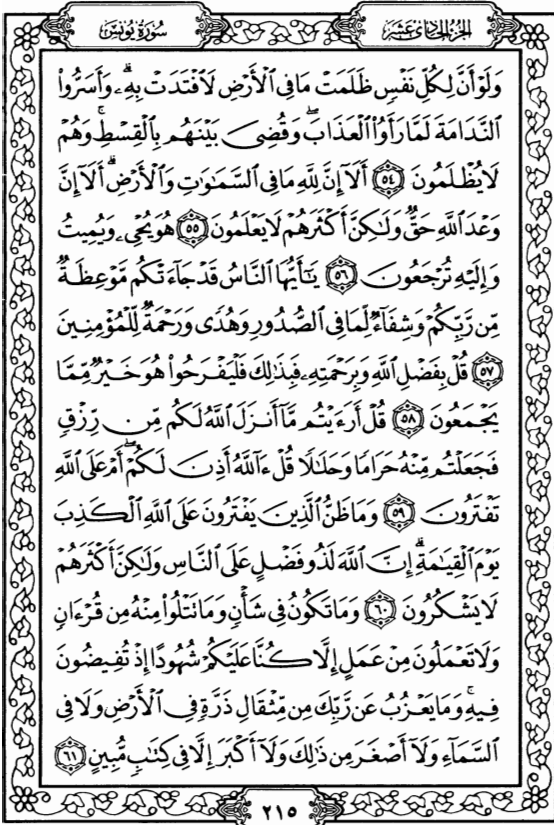 الجُزْءُ الحَادِي عَشَرَ
سُورَةُ يُونُسَ
وَلَوْ أَنَّ لِكُلِّ نَفْسٍ ظَلَمَتْ مَا فِي ٱلْأَرْضِ لَٱفْتَدَتْ بِهِۦۗ وَأَسَرُّوا۟
ٱلنَّدَامَةَ لَمَّا رَأَوُا۟ ٱلْعَذَابَۖ وَقُضِىَ بَيْنَهُم بِٱلْقِسْطِۚ وَهُمْ
لَا يُظْلَمُونَ ٥٤ أَلَآ إِنَّ لِلَّهِ مَا فِي ٱلسَّمَٰوَٰتِ وَٱلْأَرْضِۗ أَلَآ إِنَّ
وَعْدَ ٱللَّهِ حَقٌّ وَلَٰكِنَّ أَكْثَرَهُمْ لَا يَعْلَمُونَ ٥٥ هُوَ يُحْيِۦ وَيُمِيتُ
وَإِلَيْهِ تُرْجَعُونَ ٥٦ يَٰٓأَيُّهَا ٱلنَّاسُ قَدْ جَآءَتْكُم مَّوْعِظَةٌ
مِّن رَّبِّكُمْ وَشِفَآءٌ لِّمَا فِي ٱلصُّدُورِ وَهُدًى وَرَحْمَةٌ لِّلْمُؤْمِنِينَ
٥٧ قُلْ بِفَضْلِ ٱللَّهِ وَبِرَحْمَتِهِۦ فَبِذَٰلِكَ فَلْيَفْرَحُوا۟ هُوَ خَيْرٌ مِّمَّا
يَجْمَعُونَ ٥٨ قُلْ أَرَءَيْتُم مَّآ أَنزَلَ ٱللَّهُ لَكُم مِّن رِّزْقٍ
فَجَعَلْتُم مِّنْهُ حَرَامًا وَحَلَٰلًا قُلْ ءَآللَّهُ أَذِنَ لَكُمْۖ أَمْ عَلَى ٱللَّهِ
تَفْتَرُونَ ٥٩ وَمَا ظَنُّ ٱلَّذِينَ يَفْتَرُونَ عَلَى ٱللَّهِ ٱلْكَذِبَ
يَوْمَ ٱلْقِيَٰمَةِۗ إِنَّ ٱللَّهَ لَذُو فَضْلٍ عَلَى ٱلنَّاسِ وَلَٰكِنَّ أَكْثَرَهُمْ
لَا يَشْكُرُونَ ٦٠ وَمَا تَكُونُ فِي شَأْنٍ وَمَا تَتْلُوا۟ مِنْهُ مِن قُرْءَانٍ
وَلَا تَعْمَلُونَ مِنْ عَمَلٍ إِلَّا كُنَّا عَلَيْكُمْ شُهُودًا إِذْ تُفِيضُونَ
فِيهِۚ وَمَا يَعْزُبُ عَن رَّبِّكَ مِن مِّثْقَالِ ذَرَّةٍ فِي ٱلْأَرْضِ وَلَا فِي
ٱلسَّمَآءِ وَلَآ أَصْغَرَ مِن ذَٰلِكَ وَلَآ أَكْبَرَ إِلَّا فِي كِتَٰبٍ مُّبِينٍ ٦١
٢١٥